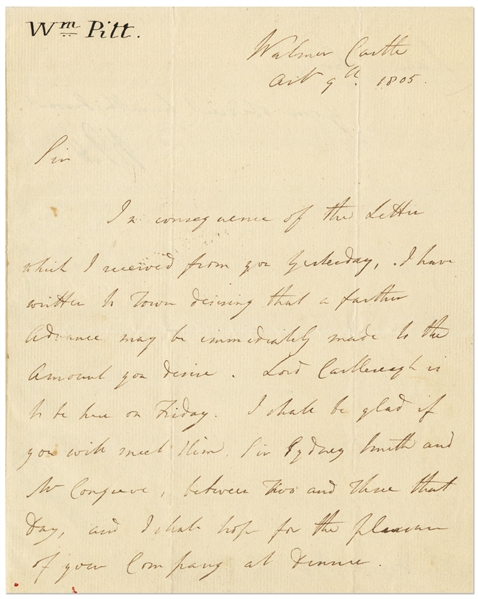 Wm Pitt.
Walmer Castle
Oct 9th. 1805.
Sir
In consequence of the Letter
which I received from you Yesterday, I have
written to Town desiring that a farther
Advance may be immediately made to the
Amount you desire. Lord Castlereagh is
to be here on Friday. I shall be glad if
you will meet Him Sir Sydney Smith and
Mr Congreve, between Two and Three that
Day, and I shall hope for the pleasure
of your Company at Dinner.